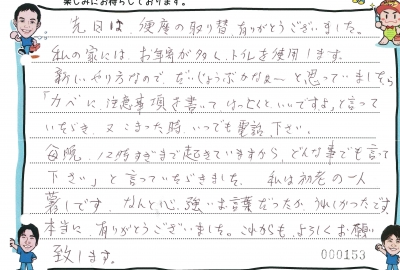 楽しみにお待ちしております。
先日は、便座の取り替ありがとうございました。
私の家には、お年寄が多く、トイレを使用します。
新しいやり方なので、だいじょうぶかなぁーと思っていましたら
「カベに、注意事項を書いて、はっとくといいですよ」と言って
いただき、又こまった時、いつでも電話下さい。
毎晩、12時すぎまで起きていますから、どんな事でも言って
下さい」と言っていただきました。私は初老の一人
暮しです。なんと心強いお言葉だったか、うれしかったです。
本当に、有りがとうございました。これからも、よろしくお願い
致します。
000153